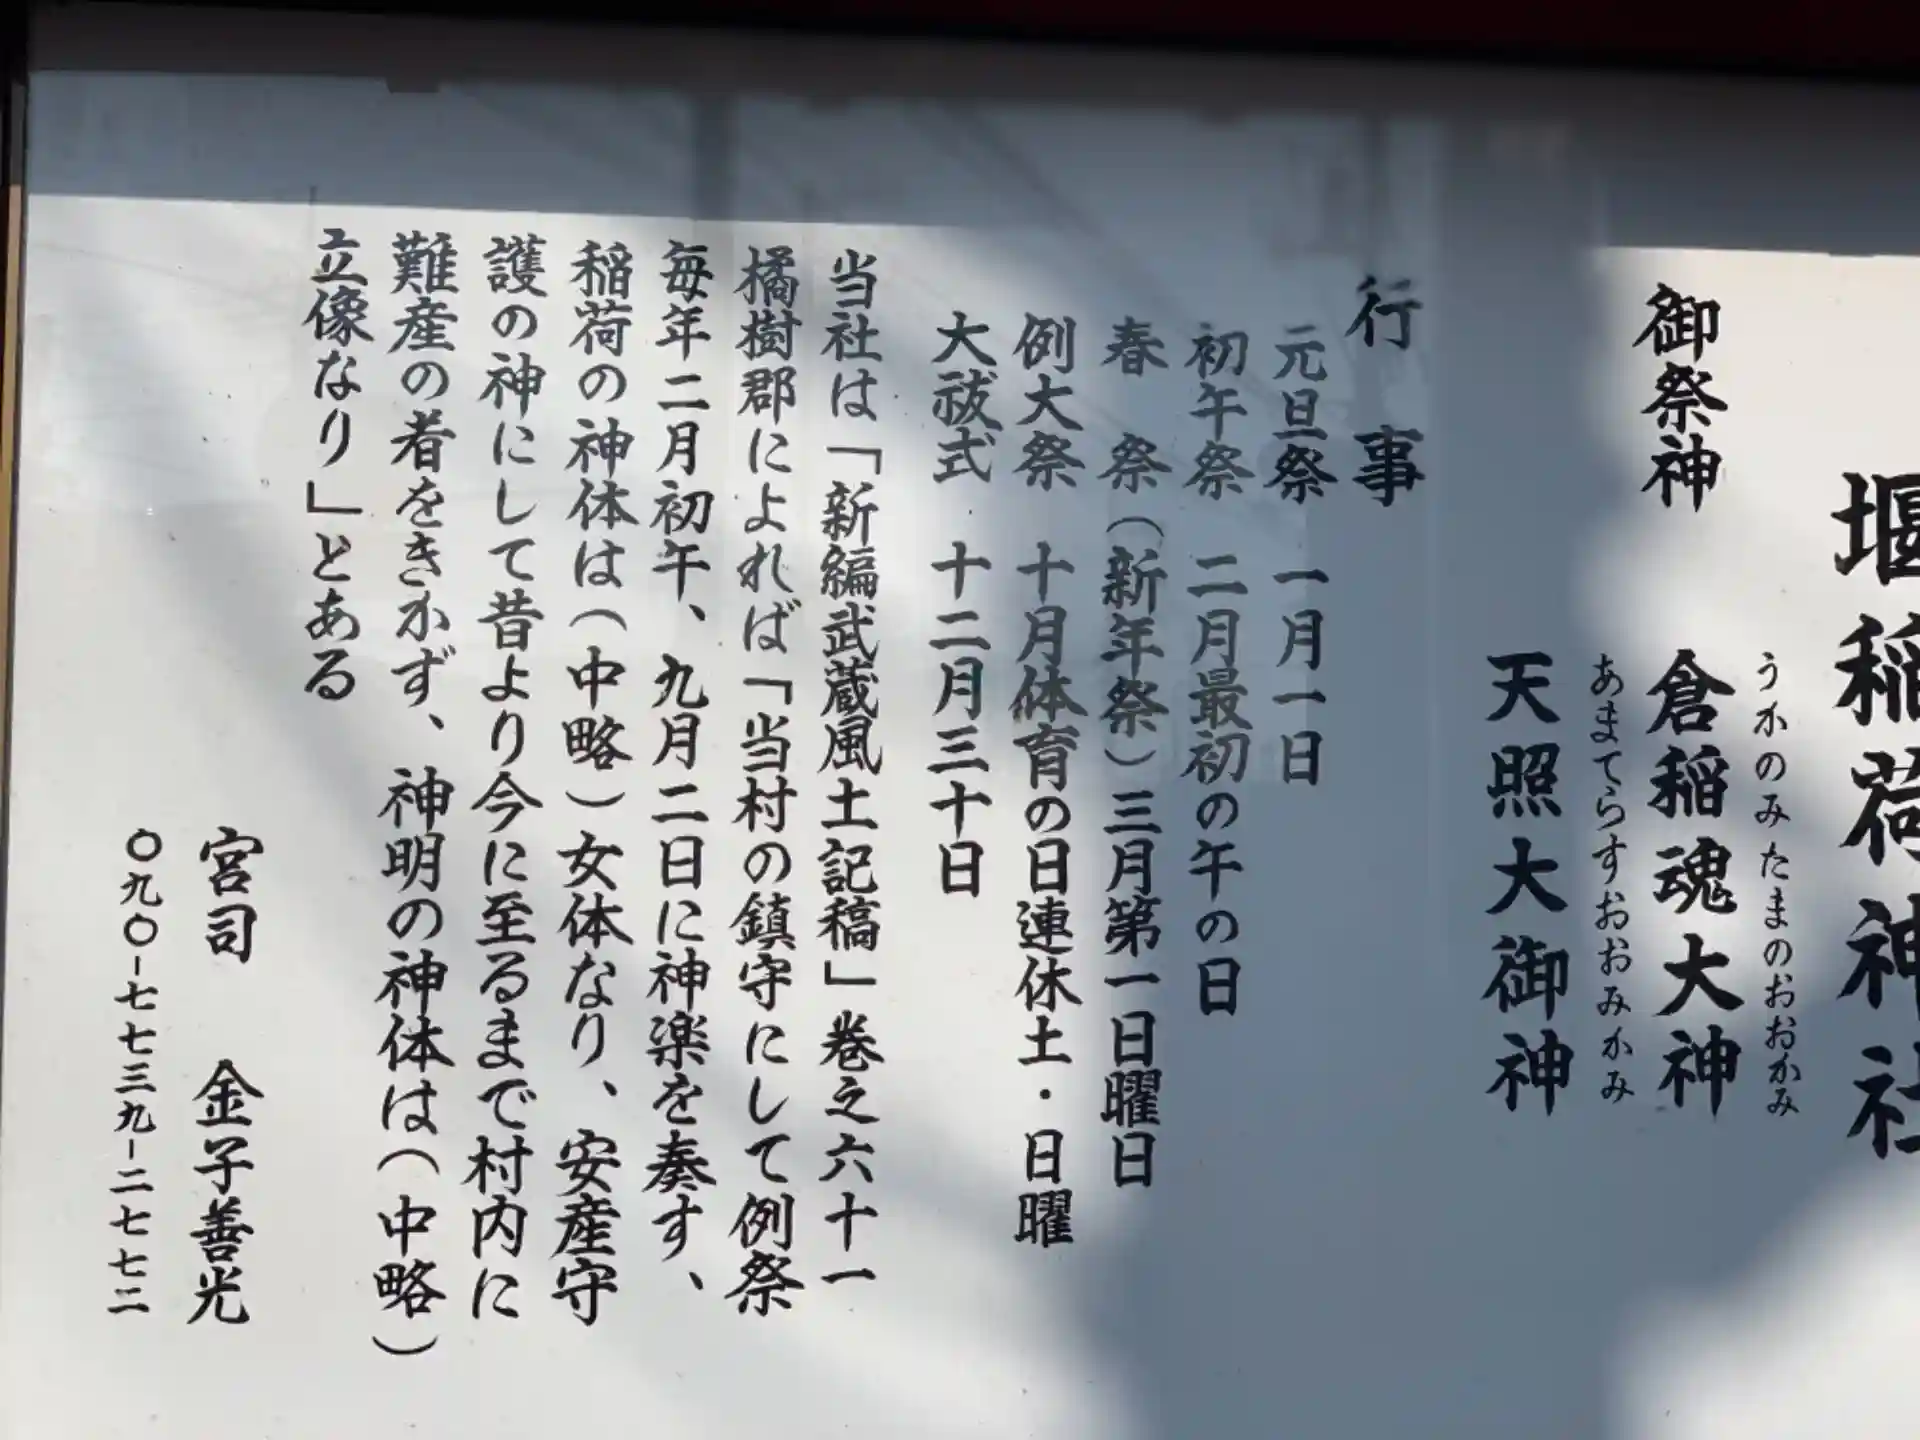 堰稲荷神社
御祭神
うかのみたまのおおかみ
倉稲魂大神
あまてらすおおみかみ
天照大御神
行事
元旦祭 一月一日
初午祭 二月最初の午の日
春 祭(新年祭)三月第一日曜日
例大祭 十月体育の日連休土・日曜
大祓式 十二月三十日
当社は「新編武蔵風土記稿」巻之六十一
橘樹郡によれば「当村の鎮守にして例祭
毎年二月初午、九月二日に神楽を奏す、
稲荷の神体は(中略)女体なり、安産守
護の神にして昔より今に至るまで村内に
難産の者をきかず、神明の神体は(中略)
立像なり」とある
宮司 金子善光
〇九〇-七七三九-二七七二